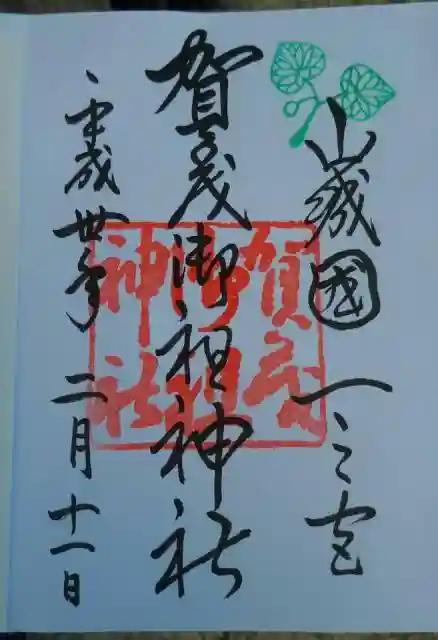 山城國一之宮
賀茂御祖神社
平成卅年二月十一日
賀茂
御祖
神社